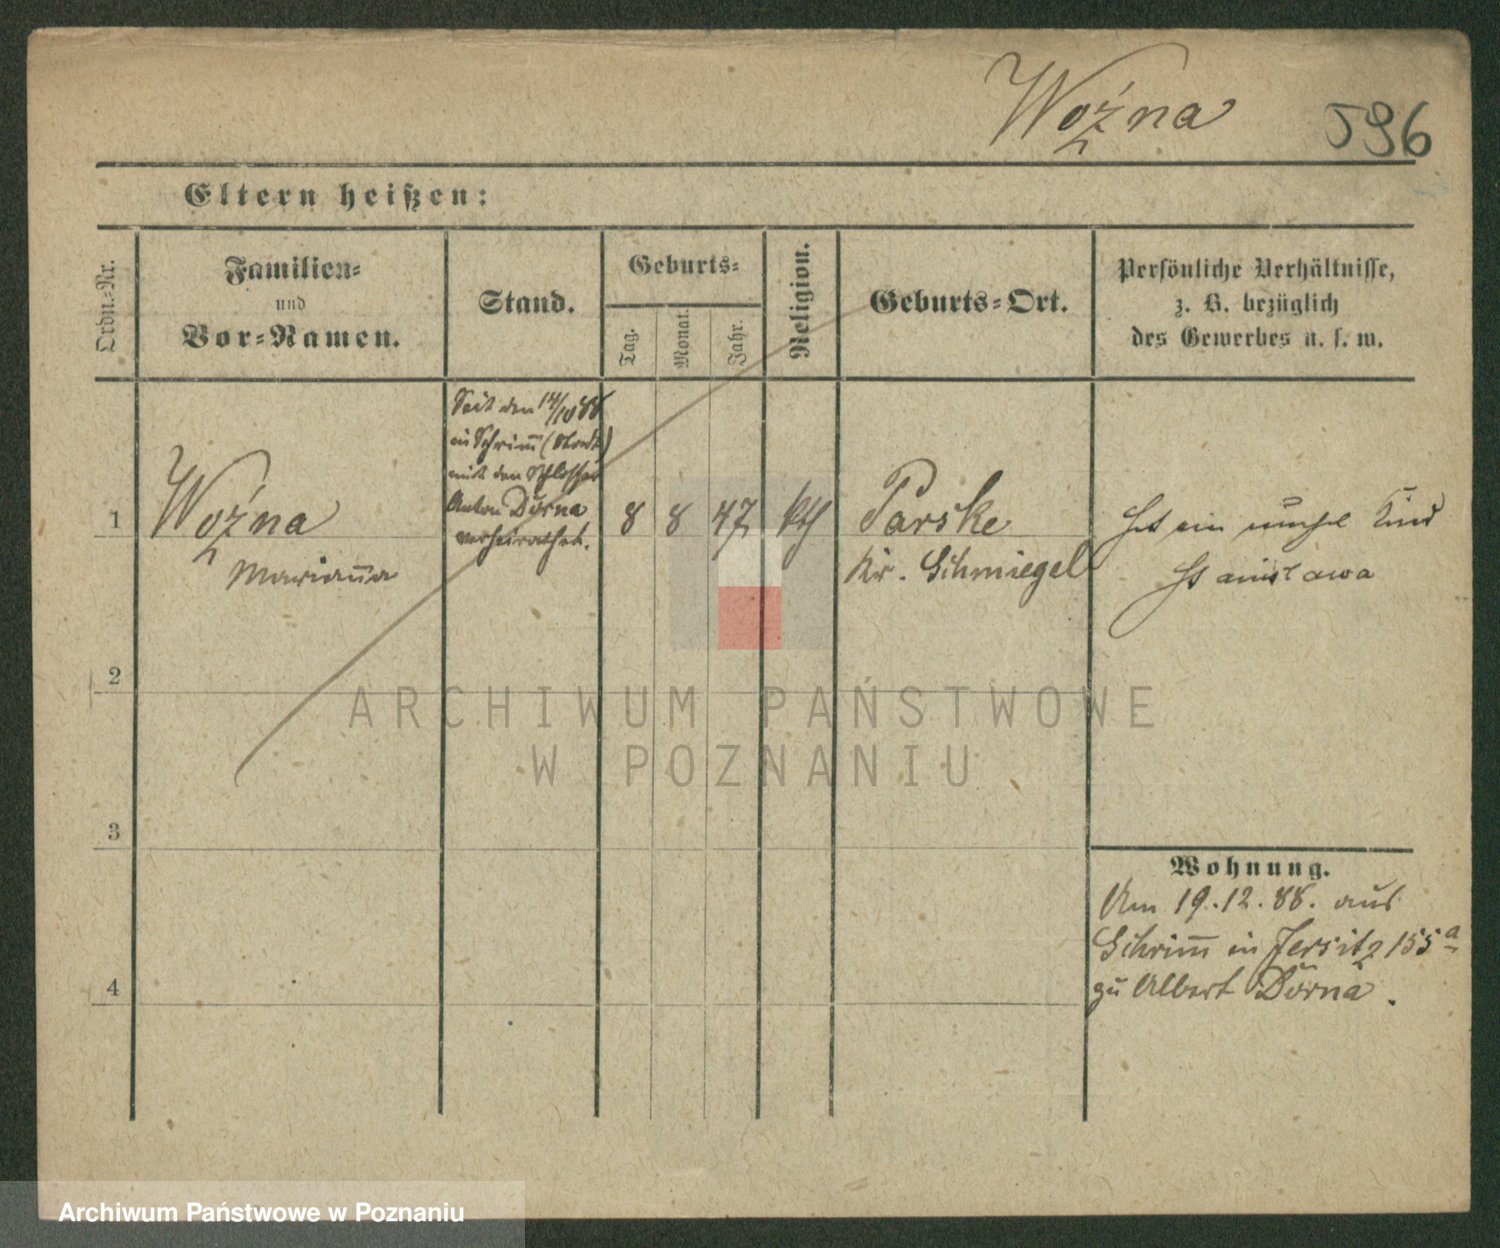 Woźna 596
Eltern heißen:
Ordn.=Nr.
Familien=
und
Vor=Namen.
Stand.
Geburts=
Tag.
Monat.
Jahr.
Religion.
Geburts=Ort.
Persönliche Verhältnisse,
z. B. bezüglich
des Gewerbes u. s. w.
Seit den 14/10 88
in Schrim̅ (Stadt)
mit den Schlosser
Anton Dorna
verheirathet.
1
Woźna
Marian̅a
8 8 47 kth
Parske
Kr. Schmiegel
Hat ein unehel Kind
Stanislawa
2
3
4
Wohnung.
Am 19.12.88. aus
Schrim̅ in Jersitz 155a
zu Albert Dorna.
ARCHIWUM PAŃSTWOWE
W POZNANIU
Archiwum Państwowe w Poznaniu